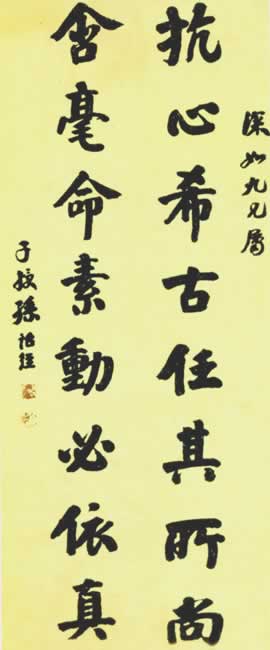 深如九兄屬
抗心希古任其所尚
含毫命素動必依真
子授孫詒經